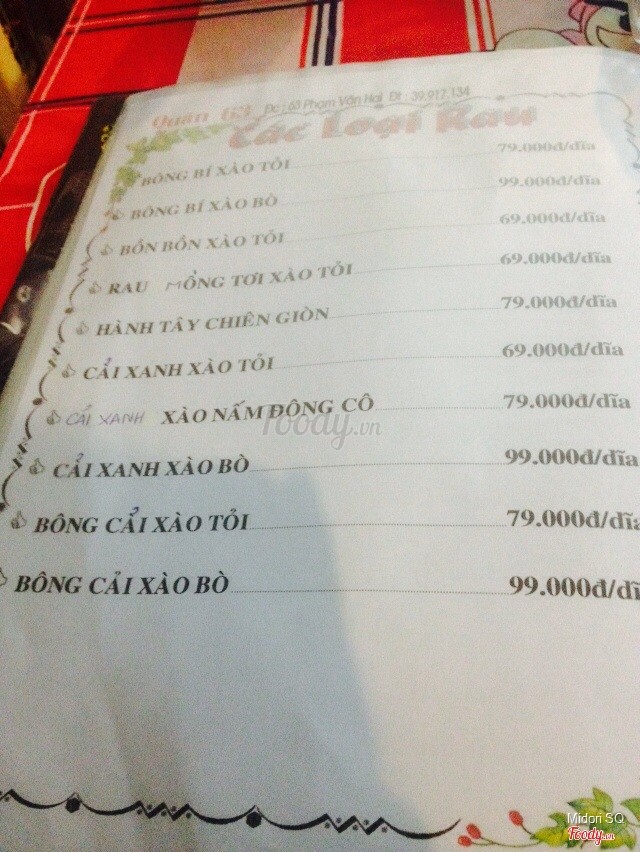 Quán 63 Đc : 63 Phạm Văn Hai Đt : 39.917.134
Các Loại Rau
BÔNG BÍ XÀO TỎI 79.000đ/đĩa
BÔNG BÍ XÀO BÒ 99.000đ/đĩa
BỒN BỒN XÀO TỎI 69.000đ/đĩa
RAU MỒNG TƠI XÀO TỎI 69.000đ/đĩa
HÀNH TÂY CHIÊN GIÒN 79.000đ/đĩa
CẢI XANH XÀO TỎI 69.000đ/đĩa
CẢI XANH XÀO NẤM ĐÔNG CÔ 79.000đ/đĩa
Foody.vn
CẢI XANH XÀO BÒ 99.000đ/đĩa
BÔNG CẢI XÀO TỎI 79.000đ/đĩa
BÔNG CẢI XÀO BÒ 99.000đ/đĩ
Midori SQ
Foody.vn